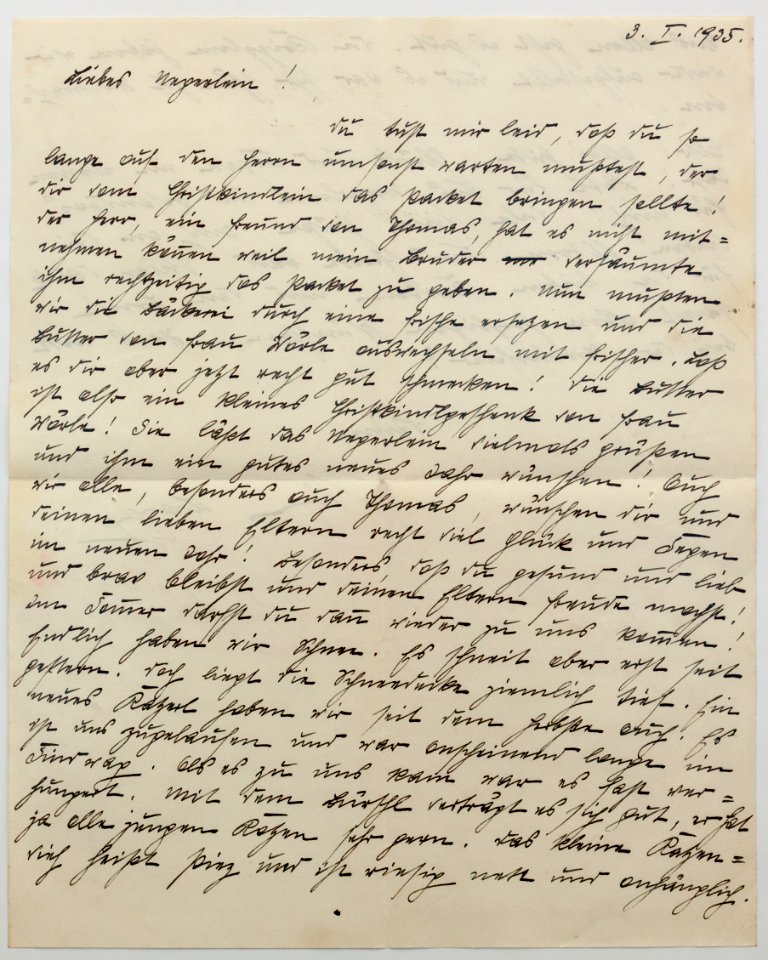 3. I. 1935.
Liebes Negerlein!
du tust mir leid, daß du so
lange auf den Herrn umsonst warten mußtest, der
dir vom Christkindlein das Packet bringen sollte!
der Herr, ein Freund von Thomas, hat es nicht mit=
nehmen können weil mein Bruder versäumte
ihm rechtzeitig das Packet zu geben. Nun mußten
wir die Bäckerei durch eine frische ersetzen und die
Butter von Frau Wörle auswechseln mit frischer. Laß
es dir aber jetzt recht gut schmecken! die Butter
ist also ein kleines Christkindlgeschenk von Frau
Wörle! Sie läßt das Negerlein vielmals grüßen
und ihm ein gutes neues Jahr wünschen! Auch
wir alle, besonders auch Thomas, wünschen dir und
deinen lieben Eltern recht viel Glück und Segen
im neuen Jahr! Besonders daß du gesund und lieb
und brav bleibst und deinen Eltern Freude machst!
im Sommer darfst du dann wieder zu uns kommen!
Endlich haben wir Schnee. Es schneit aber erst seit
gestern. doch liegt die Schneedecke ziemlich tief. Ein
neues Katzerl haben wir seit dem Herbste auch. Es
ist uns zugelaufen und war anscheinend lange im
. Als es zu uns kam war es fast ver=
hungert. Mit dem Bürschl verträgt es sich gut, er hat
ja alle jungen Katzen sehr gern. das kleine Katzen=
vieh heißt und ist riesig nett und anhänglich.